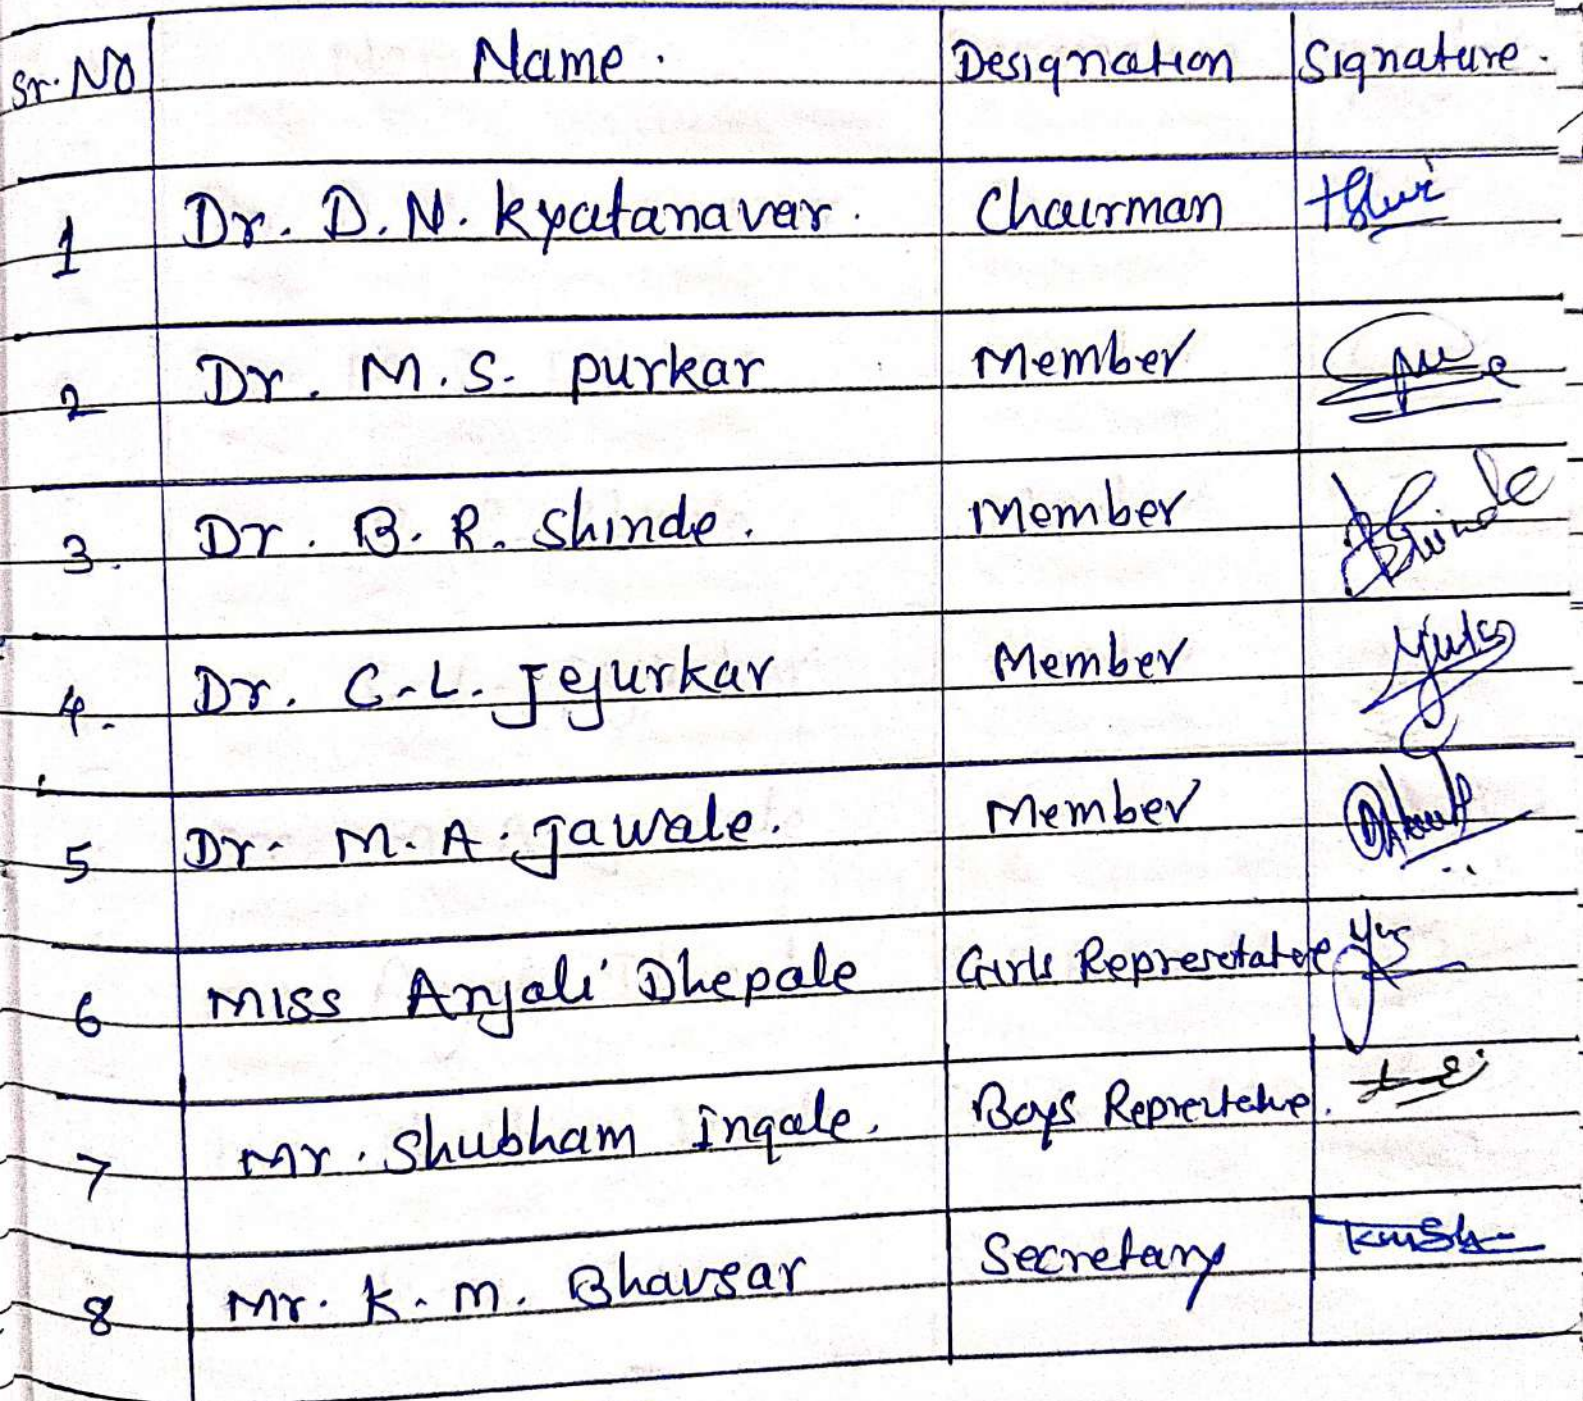 Sr. No Name. Designation Signature.
1 Dr. D. N. Kyatanavar. Chairman
2 Dr. M. S. Purkar Member
3. Dr. B. R. Shinde. Member Shinde
4. Dr. C. L. Jejurkar Member
5 Dr. M. A. Jawale. Member
6 Miss Anjali Dhepale Girls Represetative
7 Mr. Shubham Ingale. Boys
8 Mr. K. M. Bhavsar Secretary